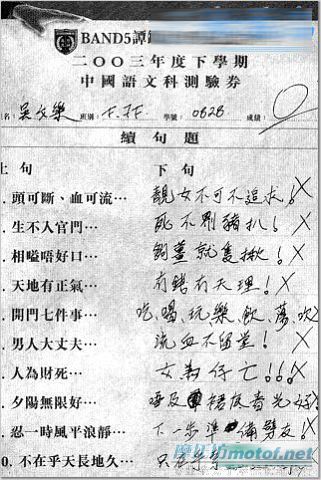 BAND5譚
二〇〇三年度下學期
中國語文科測驗券
姓名：吳文樂 班別：F.3F 學號：0626 成績：0
續句題
上句 下句
. 頭可斷、血可流⋯ 靚女不可不追求！X
. 生不人官門⋯ 死不劏豬扒！X
. 相嗌唔好口⋯ 就隻揪！X
. 天地有正氣⋯ 有錢有天理！X
. 開門七件事⋯ 吃、喝、玩、樂、飲、蕩、吹
. 男人大丈夫⋯ 流血不留堂！X
. 人為財死⋯ 女為仔亡！！！X
. 夕陽無限好⋯ 唔及裙底春光好！
. 忍一時風平浪靜⋯ 下一步準備劈友！X
0. 不在乎天長地久⋯ 只在乎